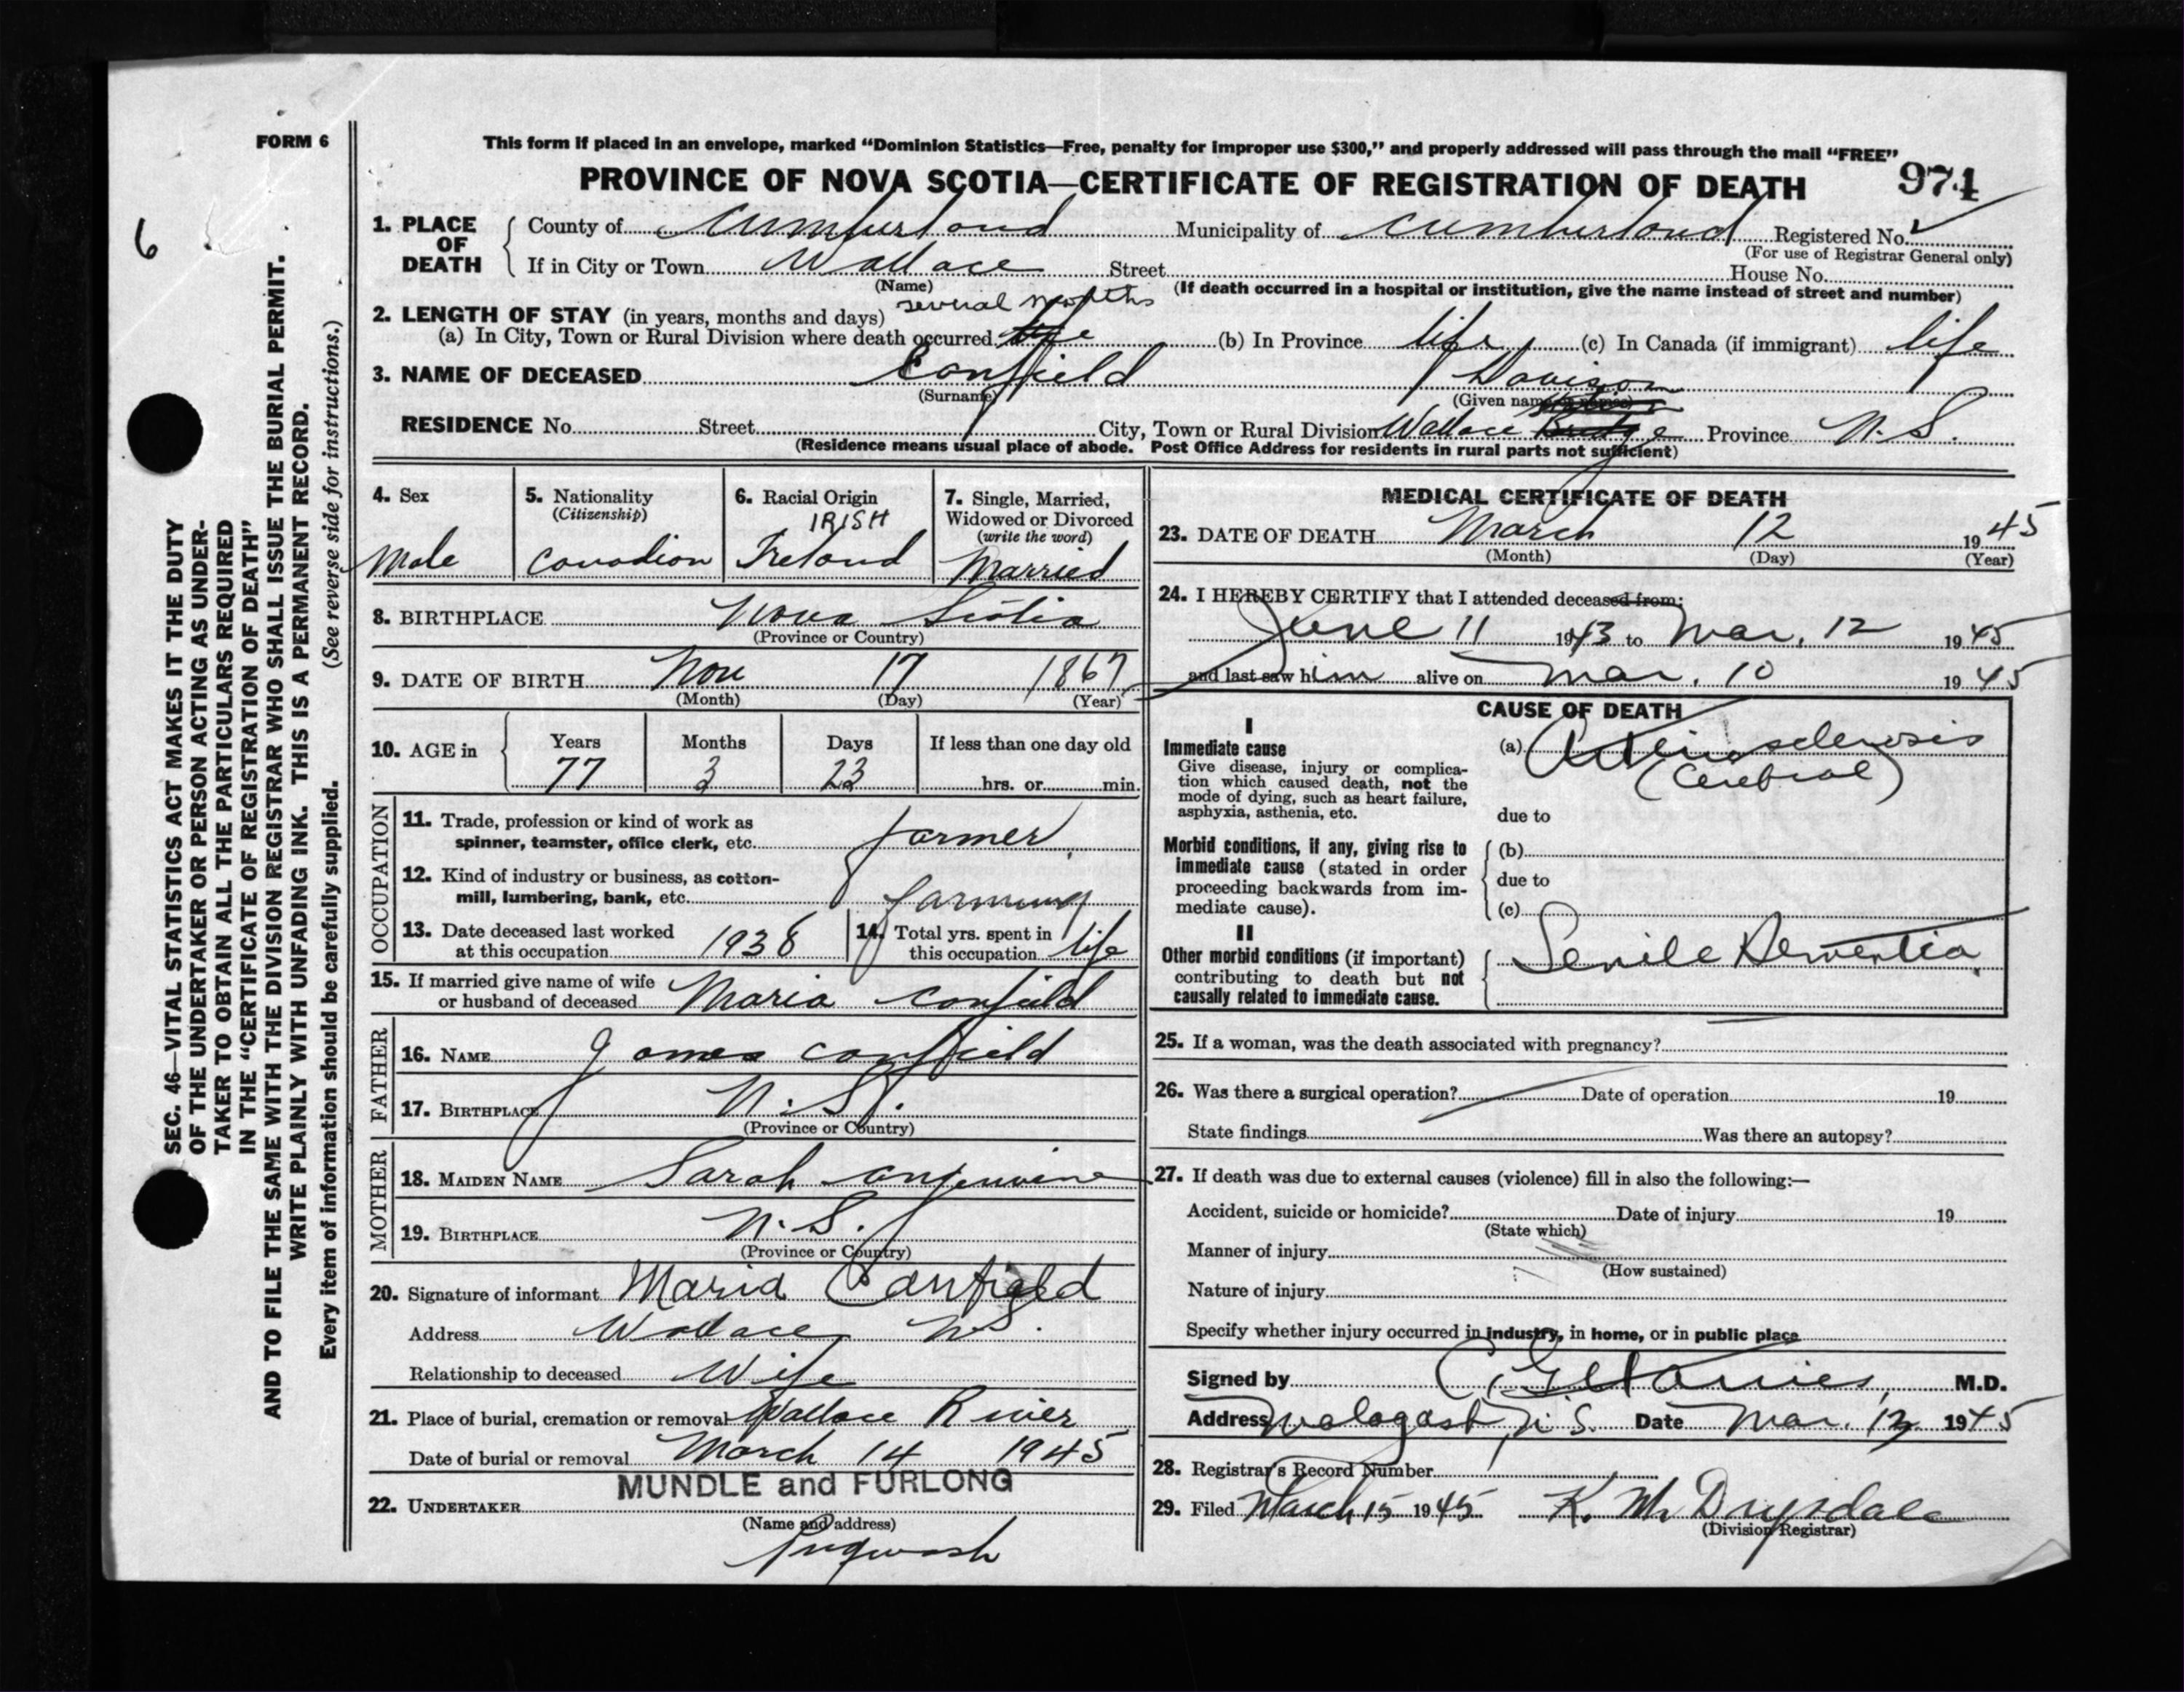 FORM 6
This form if placed in an envelope, marked “Dominion Statistics—Free, penalty for improper use $300,” and properly addressed will pass through the mail “FREE”
PROVINCE OF NOVA SCOTIA—CERTIFICATE OF REGISTRATION OF DEATH 974
6
SEC. 46—VITAL STATISTICS ACT MAKES IT THE DUTY
OF THE UNDERTAKER OR PERSON ACTING AS UNDER-
TAKER TO OBTAIN ALL THE PARTICULARS REQUIRED
IN THE “CERTIFICATE OF REGISTRATION OF DEATH”
AND TO FILE THE SAME WITH THE DIVISION REGISTRAR WHO SHALL ISSUE THE BURIAL PERMIT.
WRITE PLAINLY WITH UNFADING INK. THIS IS A PERMANENT RECORD.
Every item of information should be carefully supplied. (See reverse side for instructions.)
1. PLACE OF DEATH
County of Cumberland Municipality of Cumberland Registered No.
(For use of Registrar General only)
If in City or Town Wallace Street House No.
(Name) (If death occurred in a hospital or institution, give the name instead of street and number)
several months
2. LENGTH OF STAY (in years, months and days)
(a) In City, Town or Rural Division where death occurred life (b) In Province life (c) In Canada (if immigrant) life
3. NAME OF DECEASED Canfield Davison
(Surname) (Given name or names)
RESIDENCE No. Street City, Town or Rural Division Wallace Bridge Province N.S.
(Residence means usual place of abode. Post Office Address for residents in rural parts not sufficient)
4. Sex
Male
5. Nationality
(Citizenship)
Canadian
6. Racial Origin
IRISH
Ireland
7. Single, Married,
Widowed or Divorced
(write the word)
Married
8. BIRTHPLACE Nova Scotia
(Province or Country)
9. DATE OF BIRTH Nov 17 1867
(Month) (Day) (Year)
10. AGE in Years Months Days If less than one day old
77 3 23 hrs. or min.
OCCUPATION
11. Trade, profession or kind of work as
spinner, teamster, office clerk, etc. farmer
12. Kind of industry or business, as cotton-
mill, lumbering, bank, etc. farming
13. Date deceased last worked
at this occupation 1938
14. Total yrs. spent in
this occupation life
15. If married give name of wife
or husband of deceased Maria Canfield
FATHER
16. NAME James Canfield
17. BIRTHPLACE N.S.
(Province or Country)
MOTHER
18. MAIDEN NAME Sarah Angevine
19. BIRTHPLACE N.S.
(Province or Country)
20. Signature of informant Maria Canfield
Address Wallace N.S.
Relationship to deceased Wife
21. Place of burial, cremation or removal Wallace River
Date of burial or removal March 14 1945
MUNDLE and FURLONG
22. UNDERTAKER
(Name and address)
Pugwash
MEDICAL CERTIFICATE OF DEATH
23. DATE OF DEATH March 12 1945
(Month) (Day) (Year)
24. I HEREBY CERTIFY that I attended deceased from:
June 11 1943 to Mar. 12 1945
and last saw him alive on Mar. 10 1945
CAUSE OF DEATH
I
Immediate cause
Give disease, injury or complica-
tion which caused death, not the
mode of dying, such as heart failure,
asphyxia, asthenia, etc.
(a) Arteriosclerosis
(Cerebral)
due to
Morbid conditions, if any, giving rise to
immediate cause (stated in order
proceeding backwards from im-
mediate cause).
(b)
due to
(c)
II
Other morbid conditions (if important)
contributing to death but not
causally related to immediate cause.
Senile Dementia
25. If a woman, was the death associated with pregnancy?
26. Was there a surgical operation? Date of operation 19
State findings Was there an autopsy?
27. If death was due to external causes (violence) fill in also the following:—
Accident, suicide or homicide? Date of injury 19
(State which)
Manner of injury
(How sustained)
Nature of injury
Specify whether injury occurred in industry, in home, or in public place
Signed by M.D.
Address N.S. Date Mar. 1945
28. Registrar's Record Number
29. Filed March 15 1945 K. M. Drysdale
(Division Registrar)